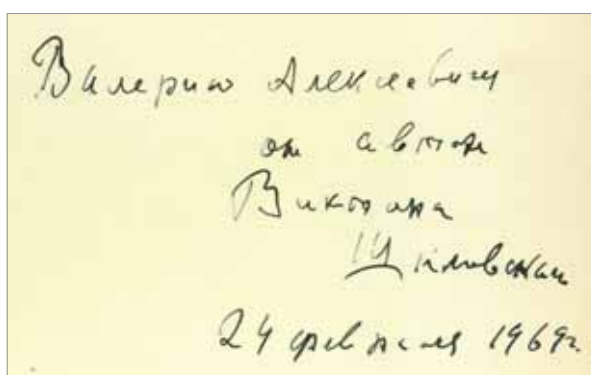 Валерию Алексеевичу
от автора
Виктора
Шкловского
24 февраля 1969г.